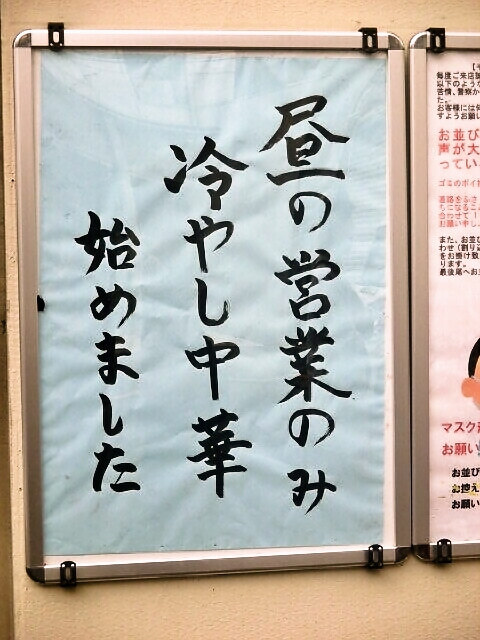 昼の営業のみ
冷やし中華
始めました
毎度ご来店
以下のような
苦情、警察か
た。
お客様には
すようお願い
お並び
声が大
ってい
ゴミのポイ
また、お並
わせ(割り
をお掛け致
ります。
最後尾へお
マスク
お願い
お並び
お控え
お願い